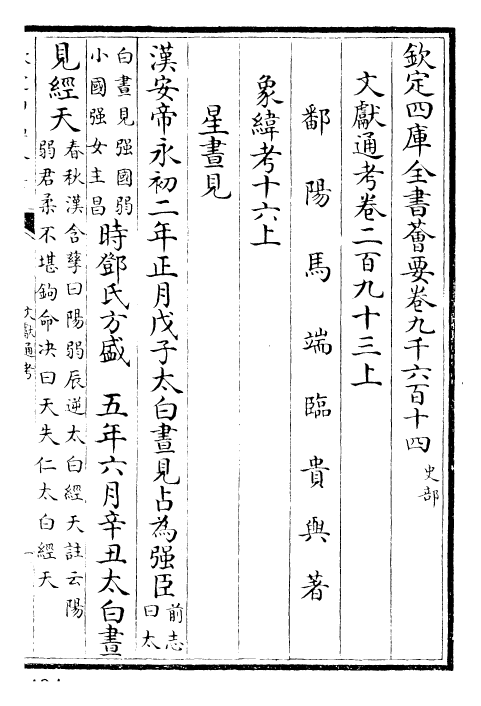 欽定四庫全書薈要卷九千六百十四 史部
文獻通考卷二百九十三上
鄱陽馬端臨貴與著
象緯考十六上
星晝見
漢安帝永初二年正月戊子太白晝見占為强臣 前志曰太
白晝見强國弱小國强女主昌 時鄧氏方盛 五年六月辛丑太白晝
見經天 春秋漢含孳曰陽弱辰逆太白經天註云陽弱君柔不堪鉤命决曰天失仁太白經天
文獻通考
一